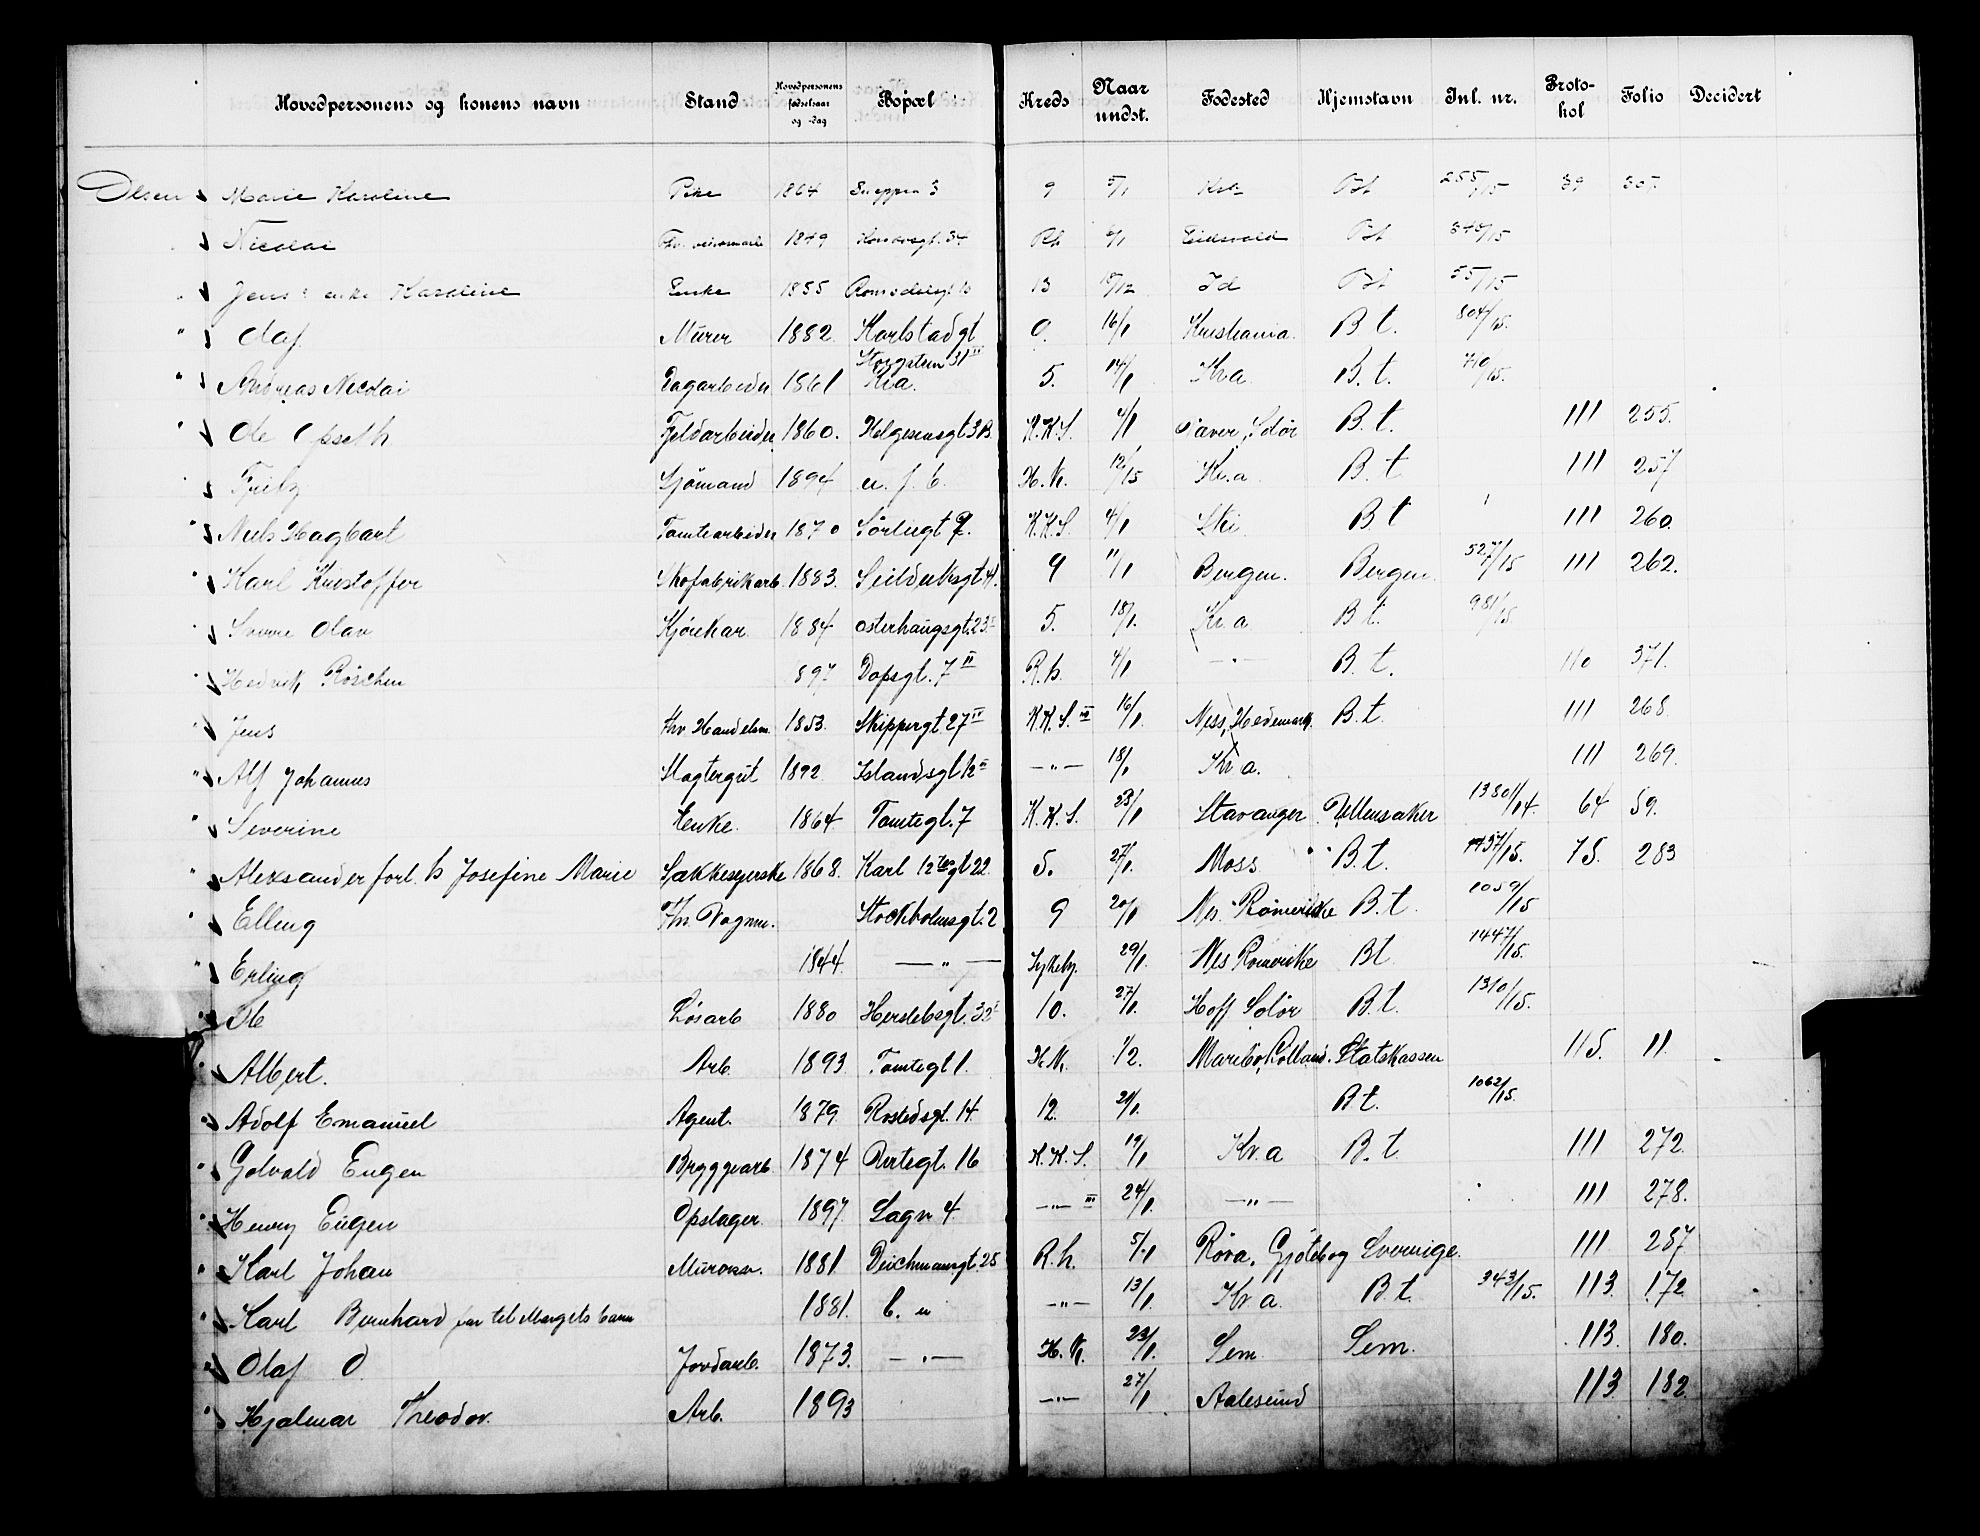 Hovedpersonens og konens navn | Stand | Hovedpersonens fødselsaar og -dag | Bopæl | Kreds | Naar undst. | Fødested | Hjemstavn | Inl. nr. | Proto-kol | Folio | Decidert
Olsen Marie Karoline | Pike | 1864 | 3 | 9 | 5/1 | | Bt | 255/15 | 39 | 307
Nicolai | | 1849 | 34 | Rh | 6/1 | Eidsvold | Bt | 340/15
Jens's enke Karoline | Enke | 1855 | Romsdalsgt | 13 | /12 | Id | Bt | 55/15
" Olaf | Murer | 1882 | Karlstadgt | 0. | 16/1 | Kristiania. | B t. | 804/15.
" Andreas Nicolai | Dagarbeider | 1861 | Storgaten 31 III Kra. | 5. | 14/1 | Kra | B. t. | 710/15.
" Ole Opseth | Fjeldarbeider | 1860. | Helgesensgt 3B. | K.K.S. | 4/1 | Solør | B. t. | | 111 | 255.
Fritz | Sjömand | 1894 | u. f. b. | H.N. | 12/15 | Kr.a | B. t | | 111 | 257
" Niels Hagbart | Tomtearbeider | 1870 | Sörligt 9. | K.K.S | 4/1 | Ski | B t | | 111 | 260.
" Karl Kristoffer | Skofabrikarb. | 1883. | Seilduksgt 4. | 9 | 11/1 | Bergen. | Bergen | 527/15 | 111 | 262.
Sverre Olav | Kjörekar | 1884 | Osterhausgt. 23 | 5. | 18/1. | Kr a | B t. | 981/15
Hedvik Röschen | | 897 | Dopsgt. 7 II | R.h. | 4/1 | — " — | B. t. | | 110 | 371.
" Jens | fhv Handelsm. | 1853. | Skippergt. 27 IV | K.K.S. III | 16/1. | Ness, Hedemark. | B. t. | | 111 | 268.
" Alf Johannes | Slagtergut | 1892 | Islandsgt | — " — | 18/1. | Kr a. | | | 111 | 269.
" Severine | Enke. | 1864 | Tomtegt. 7 | K.K.S. | 23/1 | Stavanger | Ullensaker | 1380/14. | 64 | 59.
" Aleksander forl. h Josefine Marie | Sækkesyerske | 1868. | Karl 12tes gt 22. | 5. | 27/1. | Moss | B. t. | 1437/15. | 75. | 283
" Elling | fhv. Vognm. | | Stockholmsgt. 2 | 9 | 20/1 | Nes. Romerike | B. t. | 1059/15
" Erling | | 1844. | — " — | Sykeby. | 29/1. | Nes Romerike | Bt | 1447/15.
Ole | Løsarb | 1880 | Herslebsgt. 33 | 10. | 27/1. | Hoff Solør | B. t. | 1310/15.
" Albert. | Arb. | 1893. | Tomtegt 1. | H.N. | 1/2. | Maribo, Lolland. | Statskassen | | 115. | 11.
" Adolf Emanuel | Agent. | 1879. | Rostedsgt. 14. | 12. | 21/1. | | B t. | 1062/15.
" Gotvald Eugen | Bryggearb. | 1874 | Avtegt. 16 | K.K.S. | 19/1. | Kr. a | B. t. | | 111 | 272.
" Henry Eugen | Opslager. | 1897. | Sagn 4. | — " — III | 24/1. | — " — | | | 111 | 278.
" Karl Johan | Murarb. | 1881 | Deichmansgt. 25 | R. h. | 5/1 | Röra, Gjöteborg Sverrige. | | | 111 | 287
" Karl Bernhard far til Margits barn | | 1881. | b. u | — " — | 13/1. | Kr a. | B t. | 343/15. | 113. | 172
" Olaf O. | Jordarb. | 1873. | — " — | H. N. | 23/1. | Sem. | Sem. | | 113. | 180.
" Hjalmar Theodor. | Arb. | 1893 | | — " — | 27/1 | Aalesund | | | 113. | 182.